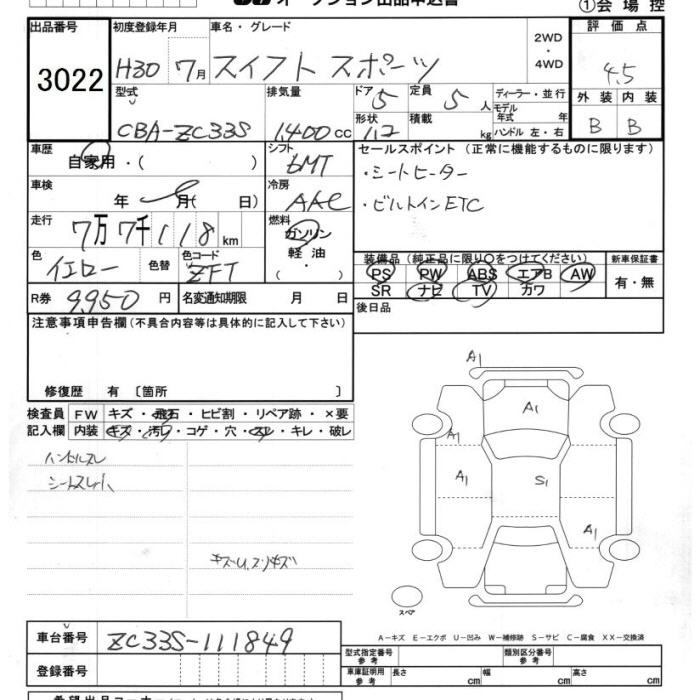 オークション出品申込書 ①会場控
出品番号 3022
初度登録年月 H30 7月
車名・グレード スイフト スポーツ
2WD ・ 4WD
評価点 4.5
型式 CBA-ZC33S
排気量 1,400cc
ドア 5
形状 1,2
定員 5人
積載 kg
ディーラー・並行
モデル年式 年
ハンドル 左・右
外装 内装
B B
車歴 自家用・( )
シフト 6MT
セールスポイント (正常に機能するものに限ります)
・シートヒーター
・ビルトインETC
車検 年 月( 日)
冷房 AAC
走行 7万7千118km
燃料 ガソリン・軽油・( )
色 イエロー 色替
色コード ZFT
装備品(純正品に限り○をつけてください)
PS PW ABS エアB AW
SR ナビ TV カワ
新車保証書
有・無
R券 9,950円
名変通知期限 月 日
後日品
注意事項申告欄(不具合内容等は具体的に記入して下さい)
修復歴 有 〔箇所 〕
検査員記入欄
FW キズ・飛石・ヒビ割・リペア跡・×要
内装 キズ・汚レ・コゲ・穴・スレ・キレ・破レ
ハンドルスレ
キズU,スリキズ
A1
A1
A1
A1
S1
A1
スペア
A-キズ E-エクボ U-凹み W-補修跡 S-サビ C-腐食 XX-交換済
車台番号 ZC33S-111849
登録番号
型式指定番号 参考
類別区分番号 参考
車庫証明用 参考
長さ cm 幅 cm 高さ cm
希望出品コーナー